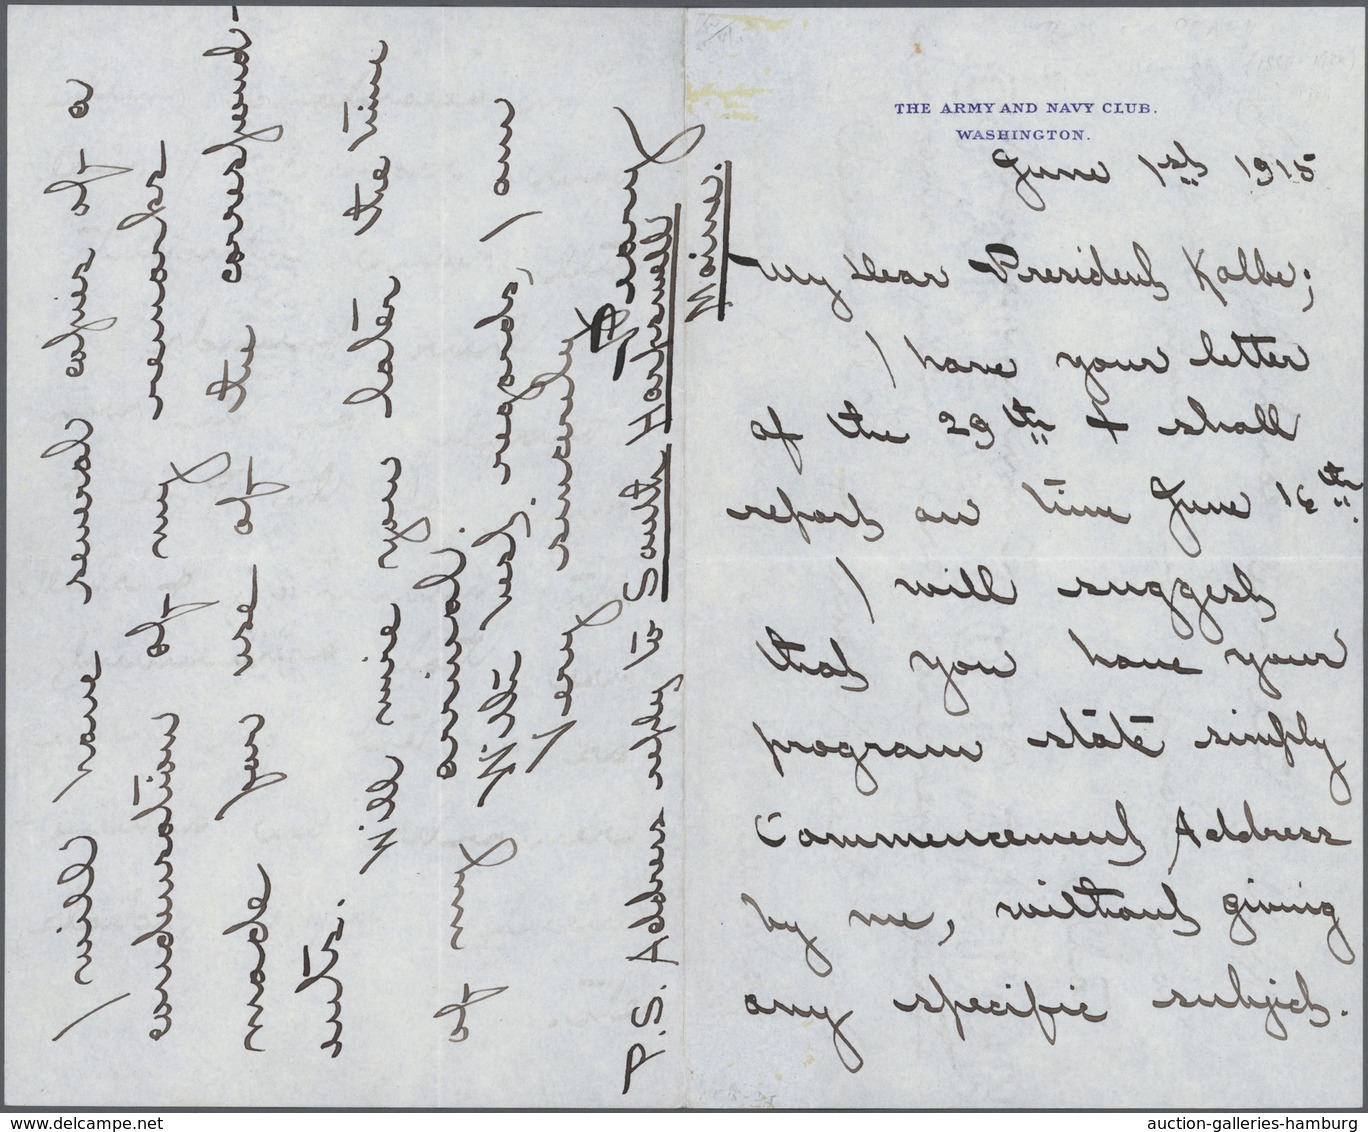 THE ARMY AND NAVY CLUB.
WASHINGTON.
June 1st 1915
My Dear President Kolbe;
I have your letter
of the 29th & shall
report on time June 16th.
I will suggest
that you have your
program state simply
Commencement Address
by me, without giving
any specific subject.
I will have several copies of a
condensation of my remarks
made for use of the correspond-
ents.
Will wire you later the time
of my arrival.
With best regards, I am
Very sincerely
Peary
P.S. Address reply to South Harpswell
Maine.
auction-galleries-hamburg